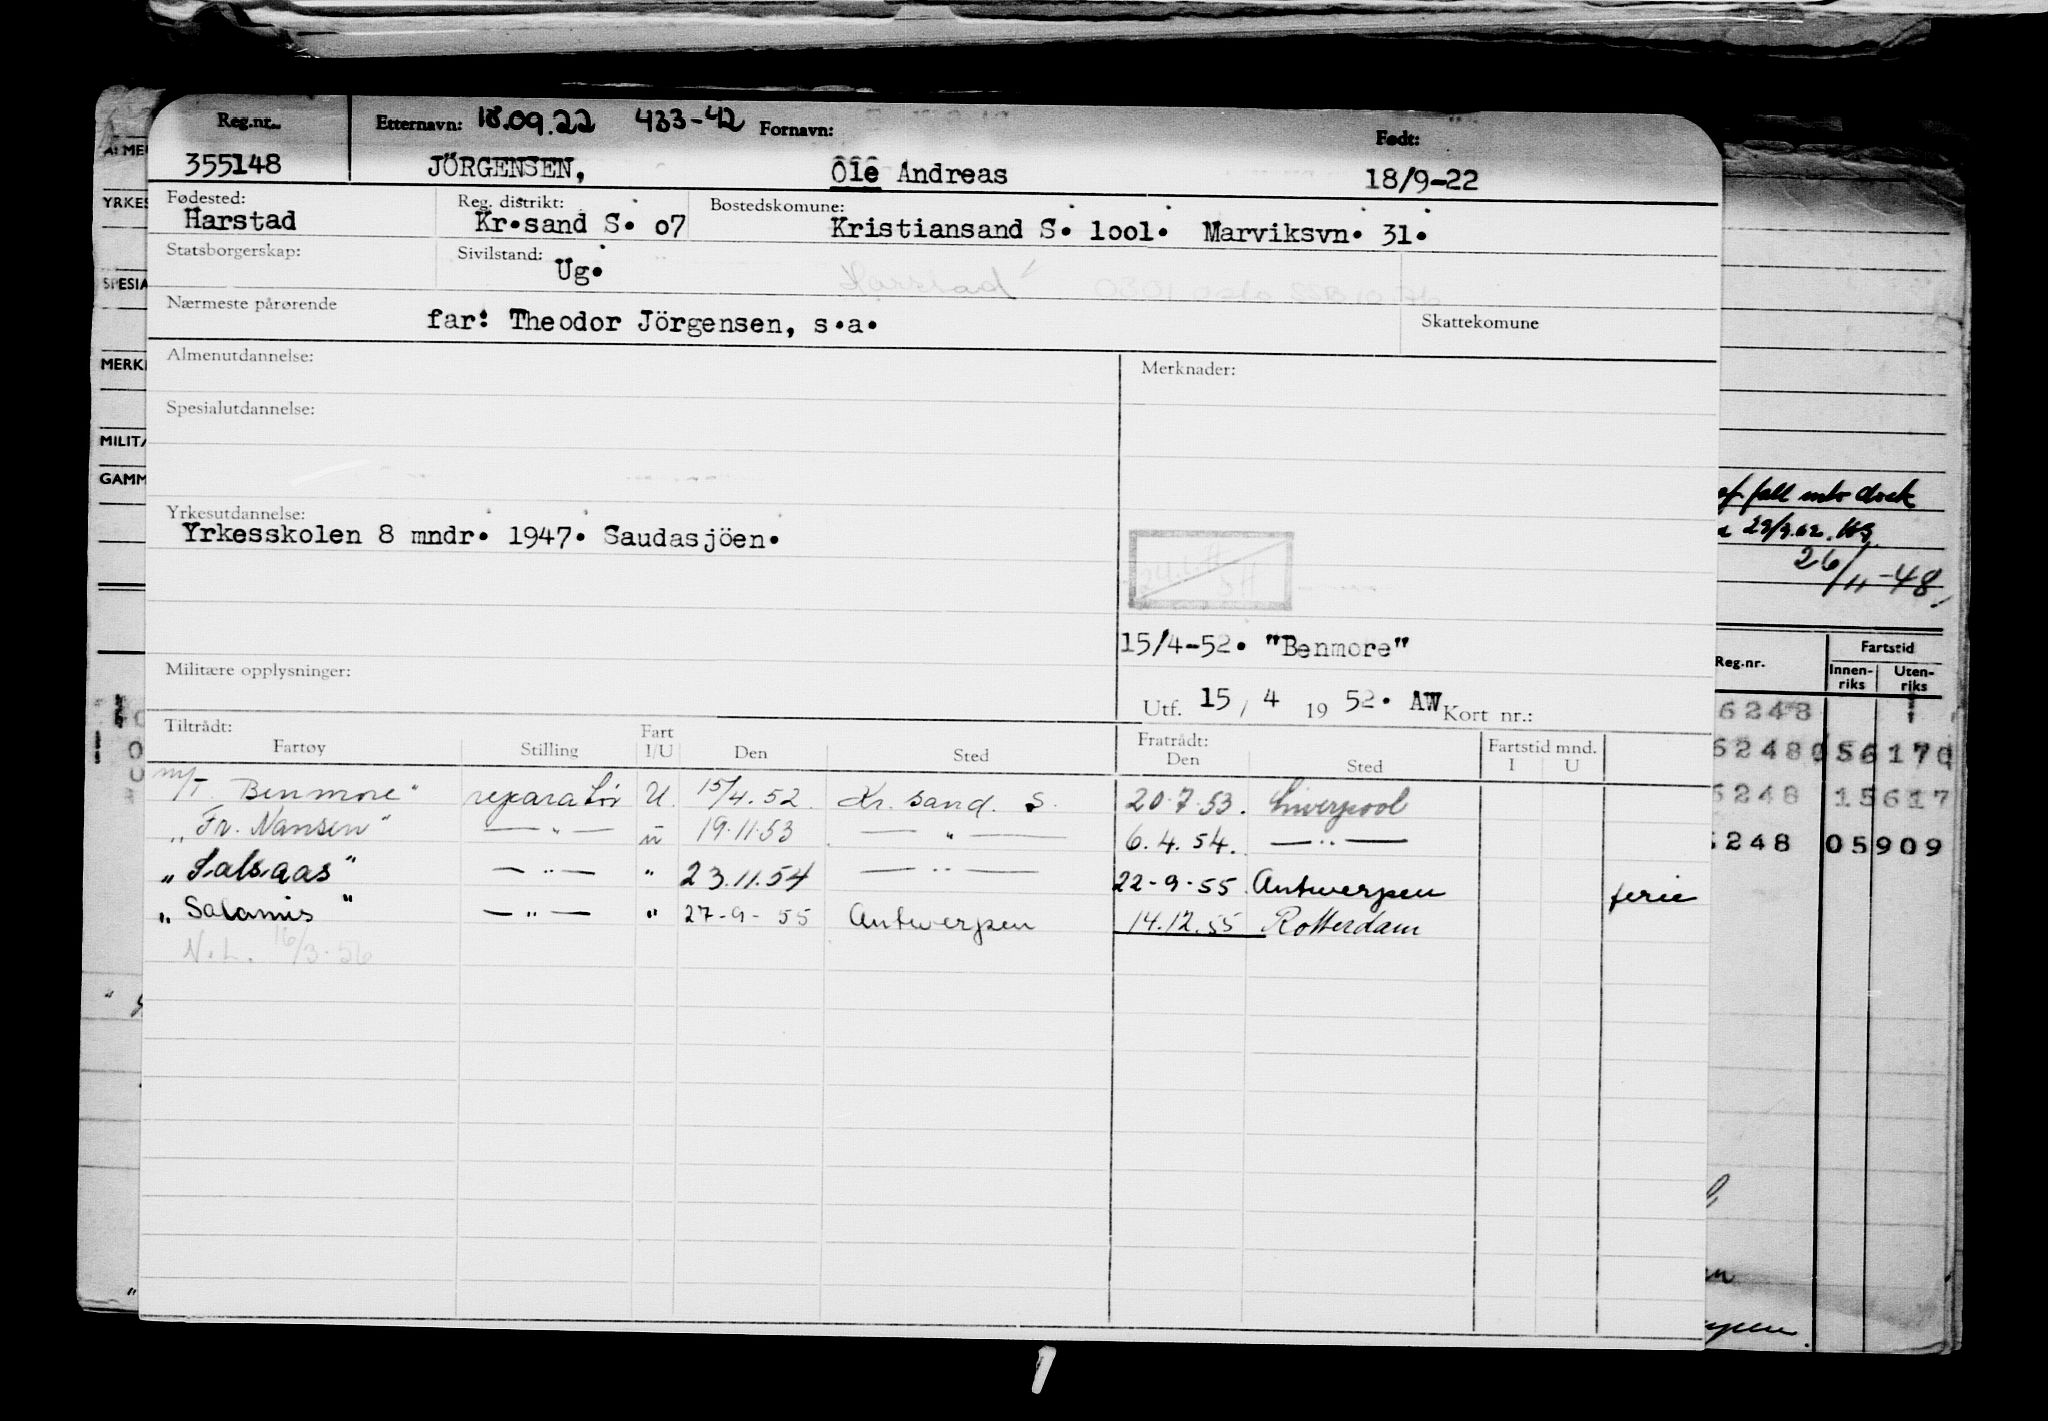 Reg.nr. Etternavn: 18.09.22 433-42 Fornavn: Født:
355148 JÖRGENSEN, Ôlê Andreas 18/9-22
Fødested: Reg. distrikt: Bostedskomune:
Harstad Kr.sand S. o7 Kristiansand S. lool. Marviksvn. 31.
Statsborgerskap: Sivilstand: Ug.
Harstad 0301 Oslo
Nærmeste pårørende
far: Theodor Jörgensen, s.a. Skattekomune
Almenutdannelse: Merknader:
Spesialutdannelse:
Yrkesutdannelse:
Yrkesskolen 8 mndr. 1947. Saudasjöen.
15/4-52. "Benmore"
Militære opplysninger:
Utf. 15 / 4 19 52. AW Kort nr.:
Tiltrådt: Fratrådt: Fartstid mnd.
Fartøy Stilling Fart I/U Den Sted Den Sted I U
m/T. Benmore" reparatör U. 15/4.52. Kr. sand. S. 20.7.53. Liverpool
„ Fr. Nansen" — „ — U 19.11.53 — „ — 6.4.54. — „ —
„ Salsaas" — „ — " 23.11.54 — „ — 22-9-55 Antwerpen ferie
„ Salamis " — „ — " 27-9-55 Antwerpen 14.12.55 Rotterdam
N.L. 16/3-56
A: ME
YRKES
SPESIA
MERK
MILITÆ
GAMM
of fall into dock
29/9.62.
26/11-48
Reg.nr. Fartstid
Innen-riks Uten-riks
6248
62480 56170
6248 15617
6248 05909